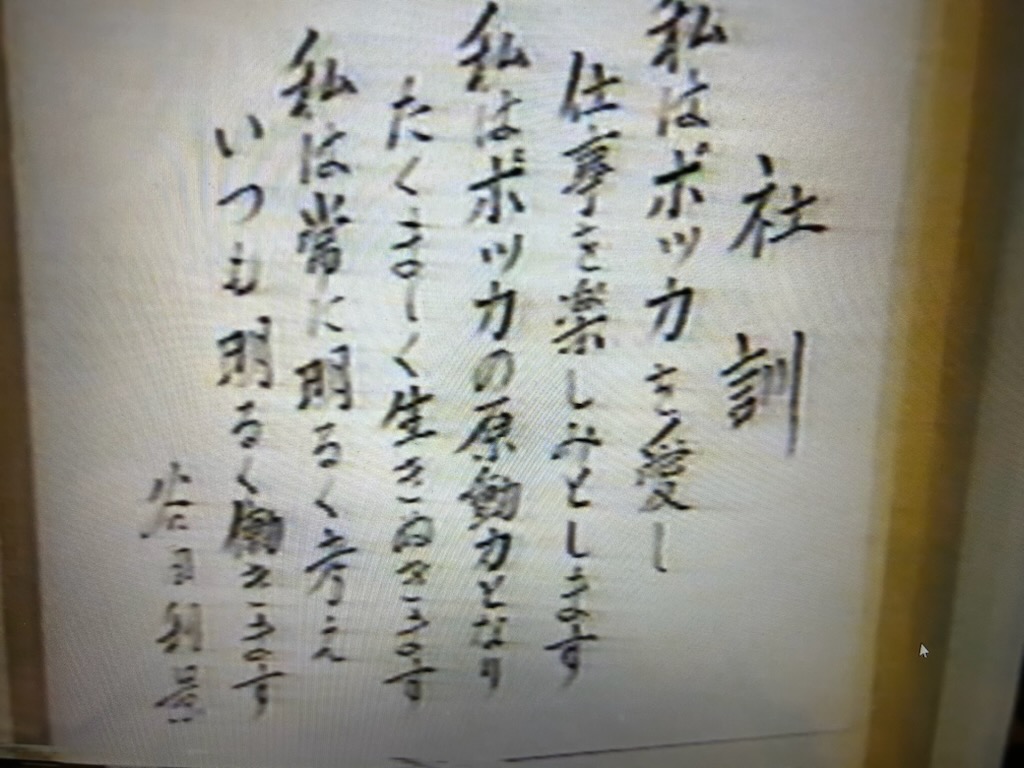 社訓
私はポッカを愛し
仕事を楽しみとします
私はポッカの原動力となり
たくましく生きぬきます
私は常に明るく考え
いつも明るく働きます
谷田利景